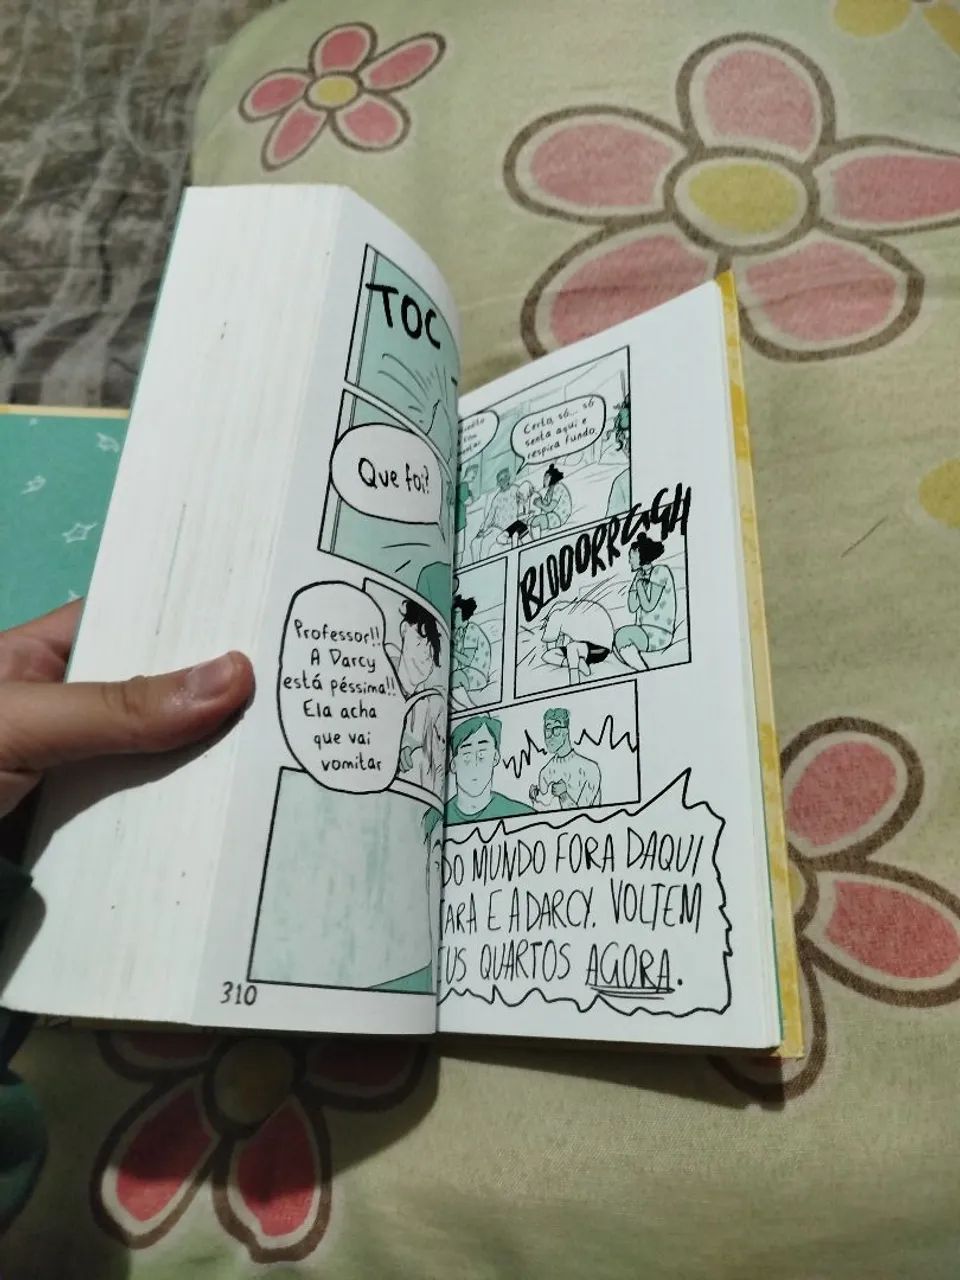 TOC
Que foi?
Professor!!
A Darcy
está péssima!!
Ela acha
que vai
vomitar
310
Certo, só... só
senta aqui e
respira fundo.
BLOOORREGGH
DO MUNDO FORA DAQUI
ARA E A DARCY. VOLTEM
EUS QUARTOS AGORA.